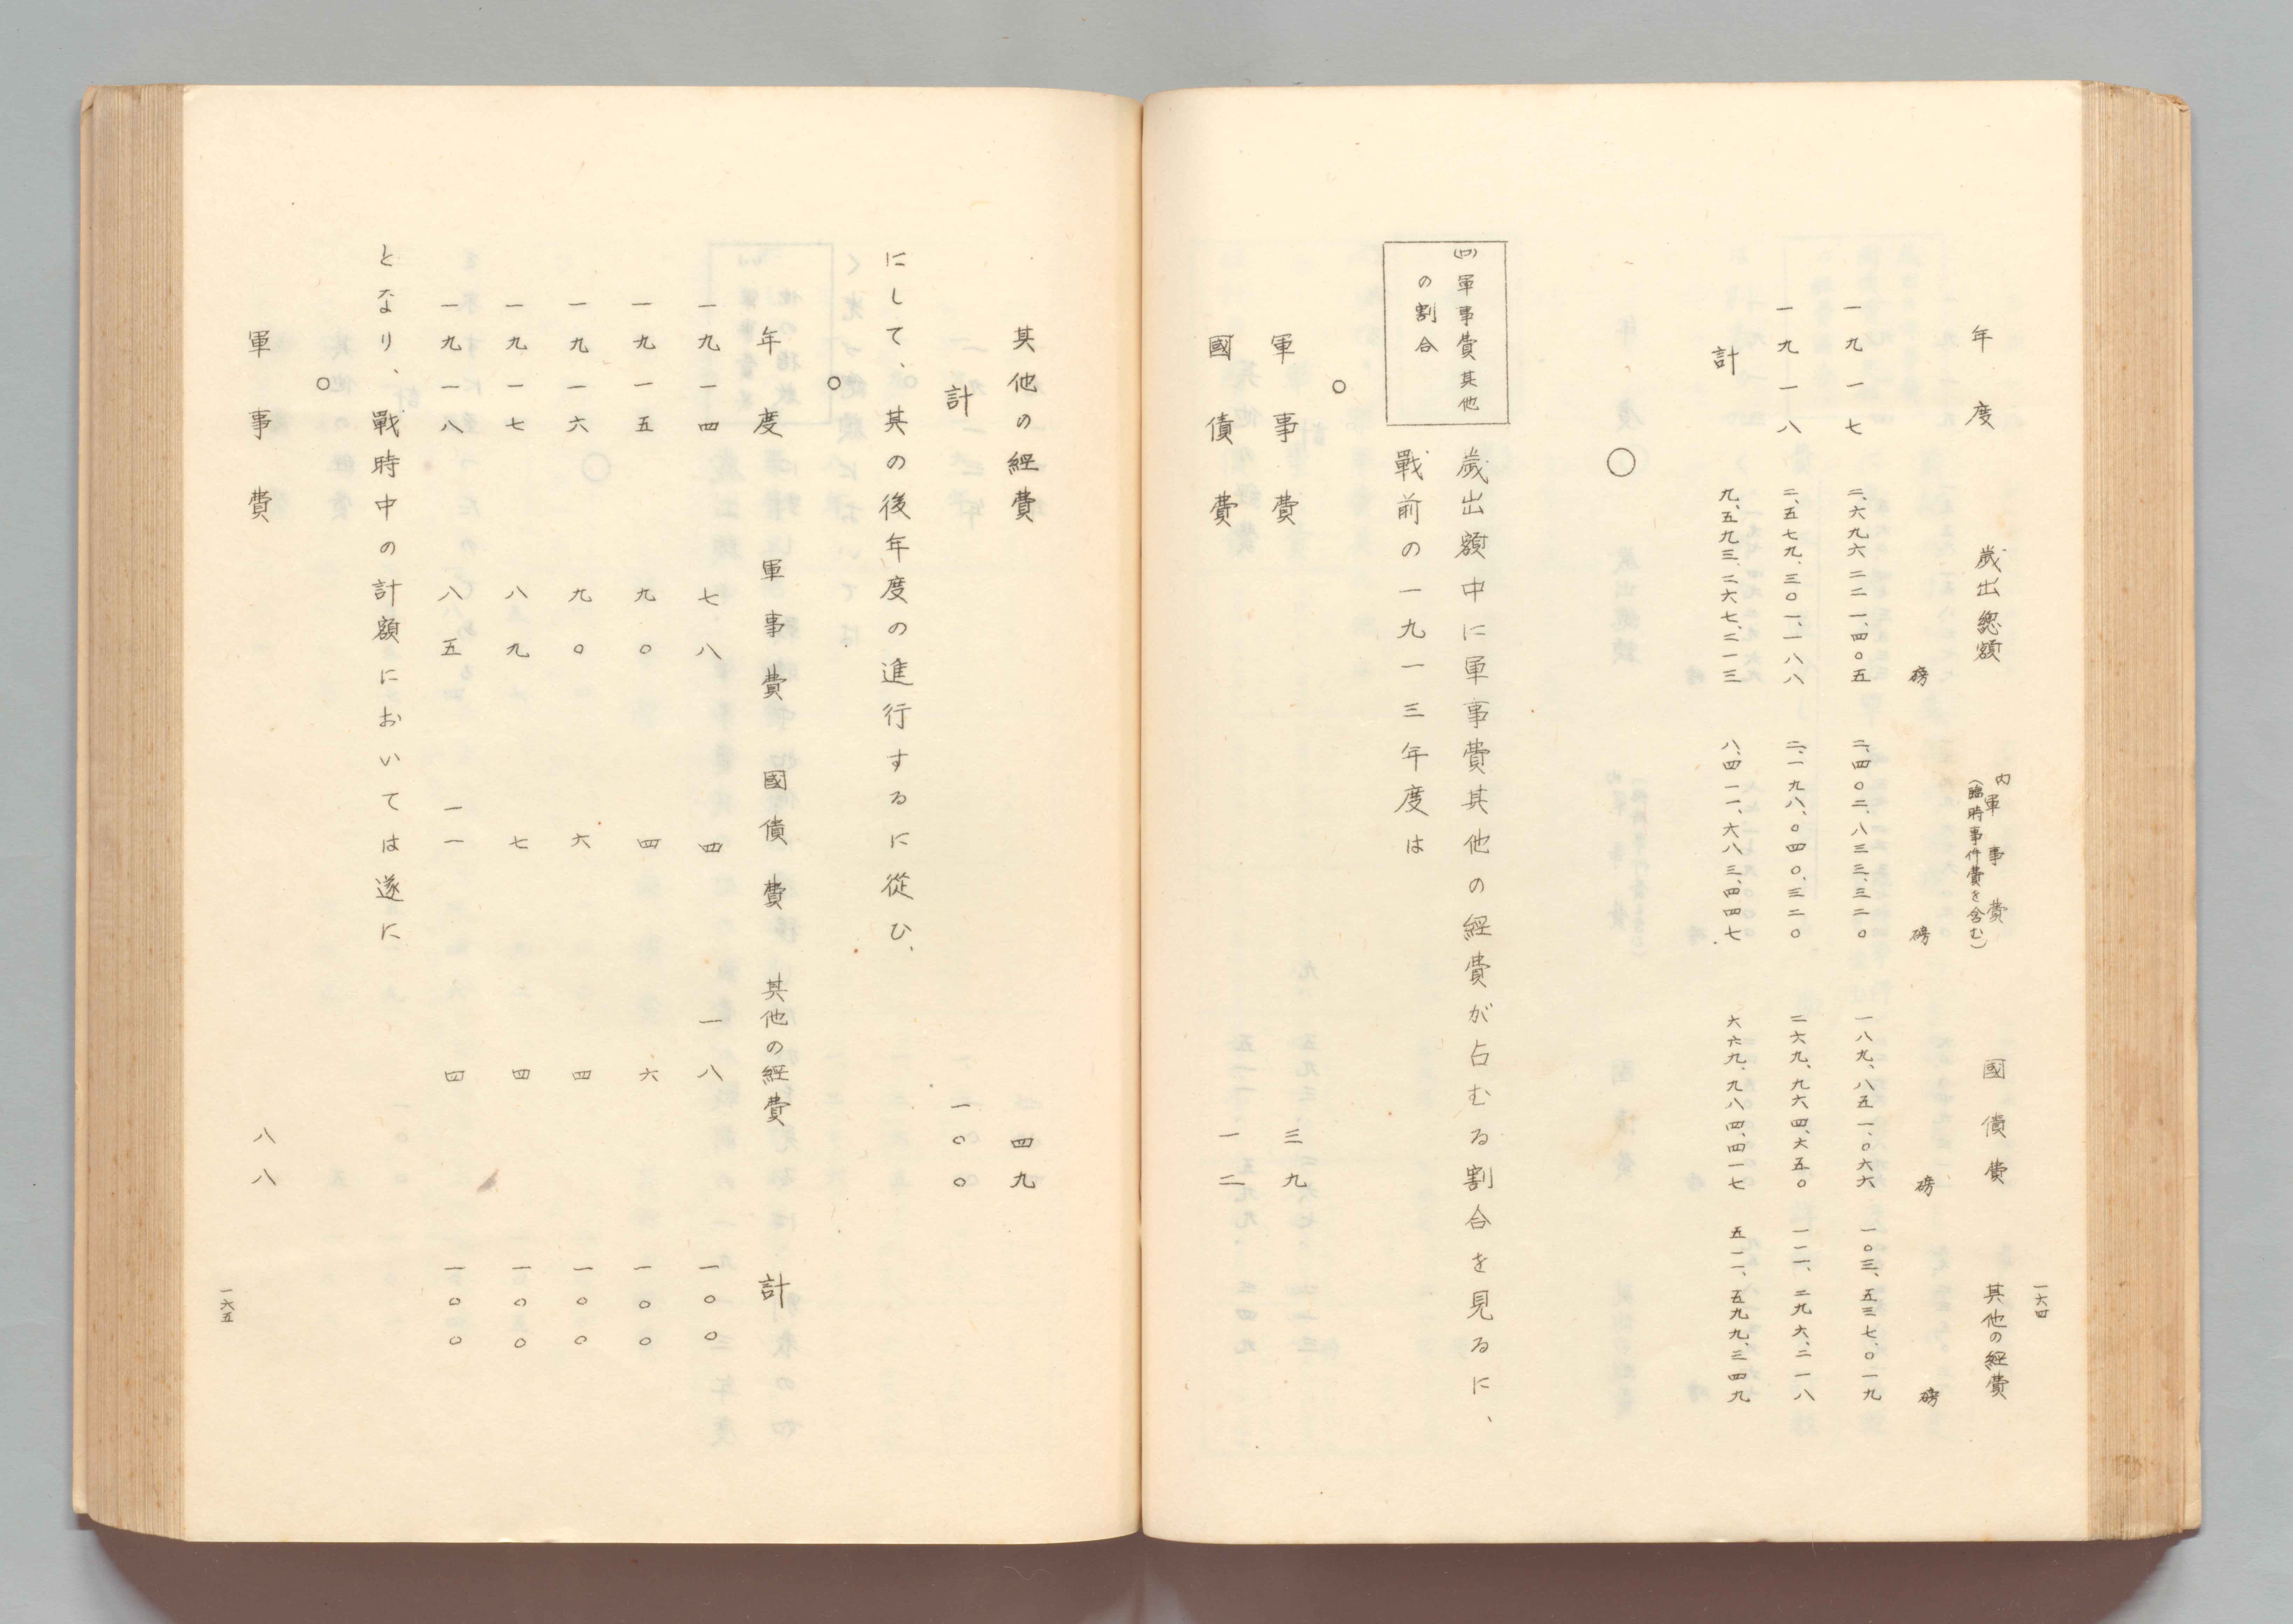 一六四
年度　歲出總額　内軍事費（臨時事件費を含む）　國債費　其他の経費
磅　磅　磅　磅
一九一七　二、六九六、二二一、四〇五　二、四〇二、八三三、三二〇　一八九、八五一、〇六六　一〇三、五三七、〇一九
一九一八　二、五七九、三〇一、一八八　二、一九八、〇四〇、三二〇　二六九、九六四、六五〇　一一一、二九六、二一八
計　九、五九三、二六七、二一三　八、四一一、六八三、四四七　六六九、九八四、四一七　五一一、五九九、三四九
○
(四)軍事費其他
の割合
歲出額中に軍事費其他の経費が占むる割合を見るに、
戰前の一九一三年度は
○
軍事費　三九
國債費　一二
其他の経費　四九
計　一〇〇
にして、其の後年度の進行するに從ひ、
○
年度　軍事費　國債費　其他の経費　計
一九一四　七八　四　一八　一〇〇
一九一五　九〇　四　六　一〇〇
一九一六　九〇　六　四　一〇〇
一九一七　八九　七　四　一〇〇
一九一八　八五　一一　四　一〇〇
となり、戰時中の計額においては遂に
○
軍事費　八八
一六五